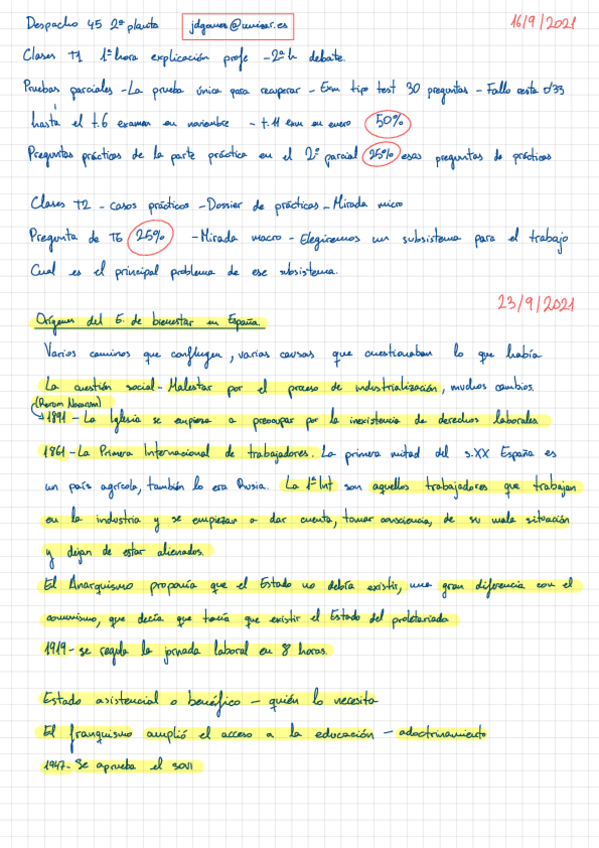 Despacho 45 2ª planta jdgomez@unizar.es 16/9/2021
Clases T1 1ª hora explicación profe - 2ª h debate.
Pruebas parciales - La prueba única para recuperar - Exm tipo test 30 preguntas - Fallo resta 0'33
hasta el t.6 examen en noviembre - t.11 exm en enero 50%
Preguntas prácticas de la parte práctica en el 2º parcial 25% esas preguntas de prácticas
Clases T2 - Casos prácticos - Dossier de prácticas - Mirada micro
Pregunta de T6 25% - Mirada macro - Elegiremos un subsistema para el trabajo
Cual es el principal problema de ese subsistema.
23/9/2021
Orígenes del E. de bienestar en España.
Varios caminos que confluyen, varias causas que cuestionaban lo que había
La cuestión social - Malestar por el proceso de industrialización, muchos cambios.
(Rerum Novarum)
1891 - La Iglesia se empieza a preocupar por la inexistencia de derechos laborales
1861 - La Primera Internacional de trabajadores. La primera mitad del s.XX España es
un país agrícola, también lo era Rusia. La 1ª Int son aquellos trabajadores que trabajan
en la industria y se empiezan a dar cuenta, tomar consciencia, de su mala situación
y dejan de estar alienados.
El Anarquismo proponía que el Estado no debría existir, una gran diferencia con el
comunismo, que decía que tenía que existir el Estado del proletariado
1919 - se regula la jornada laboral en 8 horas.
Estado asistencial o benéfico - quién lo necesita
El franquismo amplió el acceso a la educación - adoctrinamiento
1947 - Se aprueba el SOVI